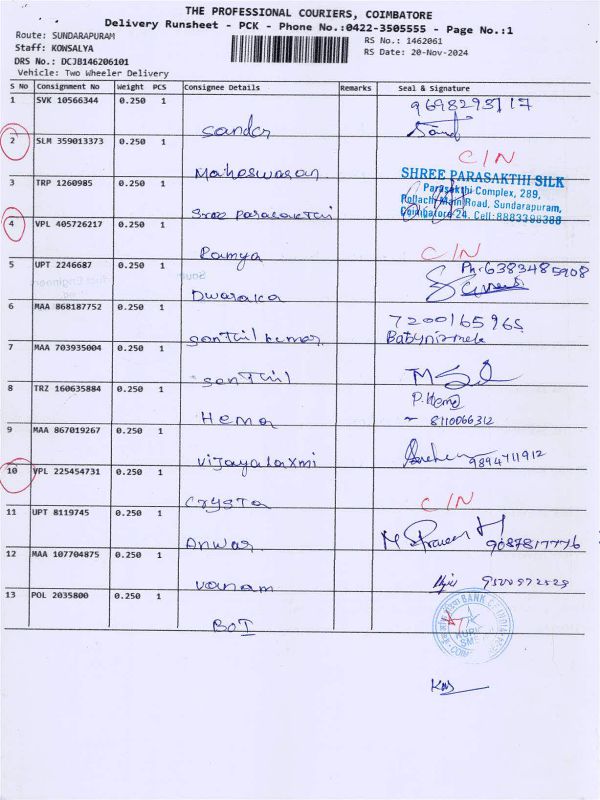 THE PROFESSIONAL COURIERS, COIMBATORE
Delivery Runsheet - PCK - Phone No.:0422-3505555 - Page No.:1
Route: SUNDARAPURAM
RS No.: 1462061
Staff: KOWSALYA
RS Date: 20-Nov-2024
DRS No.: DCJB146206101
Vehicle: Two Wheeler Delivery
S No Consignment No Weight PCS Consignee Details Remarks Seal & Signature
1 SVK 10566344 0.250 1
Sander
2 SLM 359013373 0.250 1 C/N
Maheswaran
3 TRP 1260985 0.250 1
SHREE PARASAKTHI SILK
Parasakthi Complex, 289,
Pollachi Main Road, Sundarapuram,
Coimbatore-24. Cell: 8883398388
Sree Parasakthi
4 VPL 405726217 0.250 1 C/N
Ramya
5 UPT 2246687 0.250 1 Ph: 6383485908
Dwaraka
6 MAA 868187752 0.250 1 7200165965
Senthil kumar Babynirmala
7 MAA 703935004 0.250 1
Senthil
8 TRZ 160635884 0.250 1 P. Hema
Hema 8110066312
9 MAA 867019267 0.250 1 9894711912
Vijayalaxmi
10 VPL 225454731 0.250 1 C/N
Crysta
11 UPT 8119745 0.250 1 9087817776
Anwar
12 MAA 107704875 0.250 1
Vanam
13 POL 2035800 0.250 1
BOI